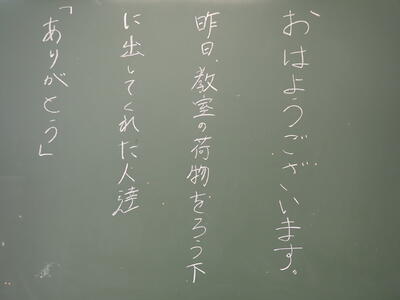 おはようございます。
昨日、教室の荷物をろう下
に出してくれた人達
「ありがとう」